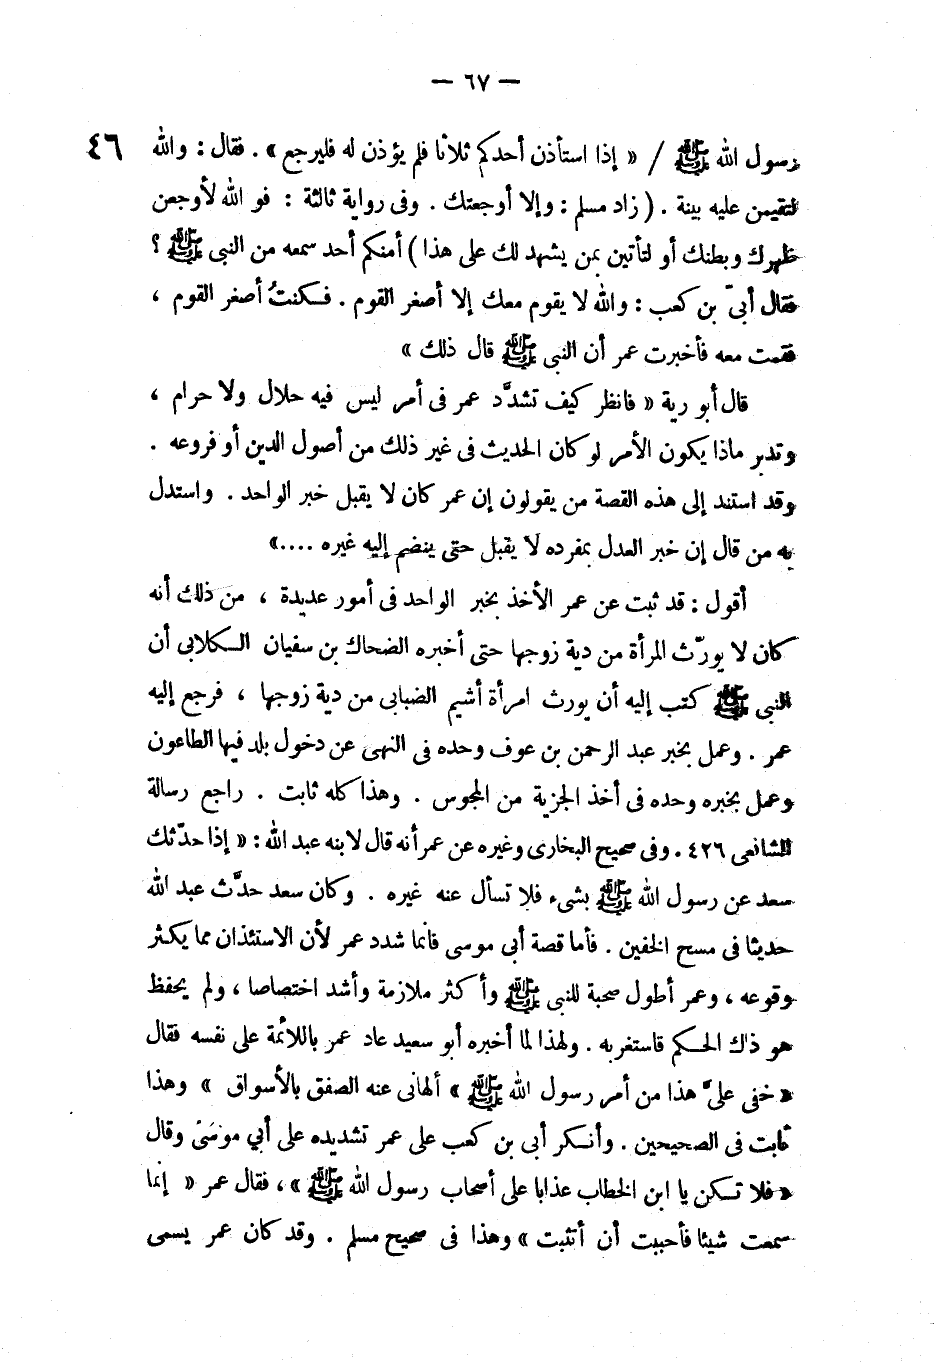 — ٦٧ —
رسول الله ﷺ / « إذا استأذن أحدكم ثلاثا فلم يؤذن له فليرجع » . فقال : والله ٤٦
لتقيمن عليه بينة . ( زاد مسلم : وإلا أوجعتك . وفى رواية ثالثة : فو الله لأوجعن
ظهرك وبطنك أو لتأتين بمن يشهد لك على هذا ) أمنكم أحد سمعه من النبى ﷺ ؟
فقال أبىّ بن كعب : والله لا يقوم معك إلا أصغر القوم . فكنتُ أصغر القوم ،
فقمت معه فأخبرت عمر أن النبى ﷺ قال ذلك »
قال أبو رية « فانظر كيف تشدَّد عمر فى أمر ليس فيه حلال ولا حرام ،
وتدبر ماذا يكون الأمر لو كان الحديث فى غير ذلك من أصول الدين أو فروعه .
وقد استند إلى هذه القصة من يقولون إن عمر كان لا يقبل خبر الواحد . واستدل
به من قال إن خبر العدل بمفرده لا يقبل حتى ينضم إليه غيره .... »
أقول : قد ثبت عن عمر الأخذ بخبر الواحد فى أمور عديدة ، من ذلك أنه
كان لا يورّث المرأة من دية زوجها حتى أخبره الضحاك بن سفيان الكلابى أن
النبى ﷺ كتب إليه أن يورث امرأة أشيم الضبابى من دية زوجها ، فرجع إليه
عمر . وعمل بخبر عبد الرحمن بن عوف وحده فى النهى عن دخول بلد فيها الطاعون
وعمل بخبره وحده فى أخذ الجزية من المجوس . وهذا كله ثابت . راجع رسالة
الشافعى ٤٢٦ . وفى صحيح البخارى وغيره عن عمر أنه قال لابنه عبد الله : « إذا حدّثك
سعد عن رسول الله ﷺ بشىء فلا تسأل عنه غيره . وكان سعد حدَّث عبد الله
حديثا فى مسح الخفين . فأما قصة أبى موسى فانما شدد عمر لأن الاستئذان مما يكثر
وقوعه ، وعمر أطول صحبة للنبى ﷺ وأكثر ملازمة وأشد اختصاصا ، ولم يحفظ
هو ذاك الحكم فاستغربه . ولهذا لما أخبره أبو سعيد عاد عمر باللائمة على نفسه فقال
« خفى علىّ هذا من أمر رسول الله ﷺ » ألهانى عنه الصفق بالأسواق » وهذا
ثابت فى الصحيحين . وأنكر أبى بن كعب على عمر تشديده على أبي موسَىْ وقال
« فلا تكن يا ابن الخطاب عذابا على أصحاب رسول الله ﷺ » ، فقال عمر « إنما
سمعت شيئا فأحببت أن أتثبت » وهذا فى صحيح مسلم . وقد كان عمر يسمى